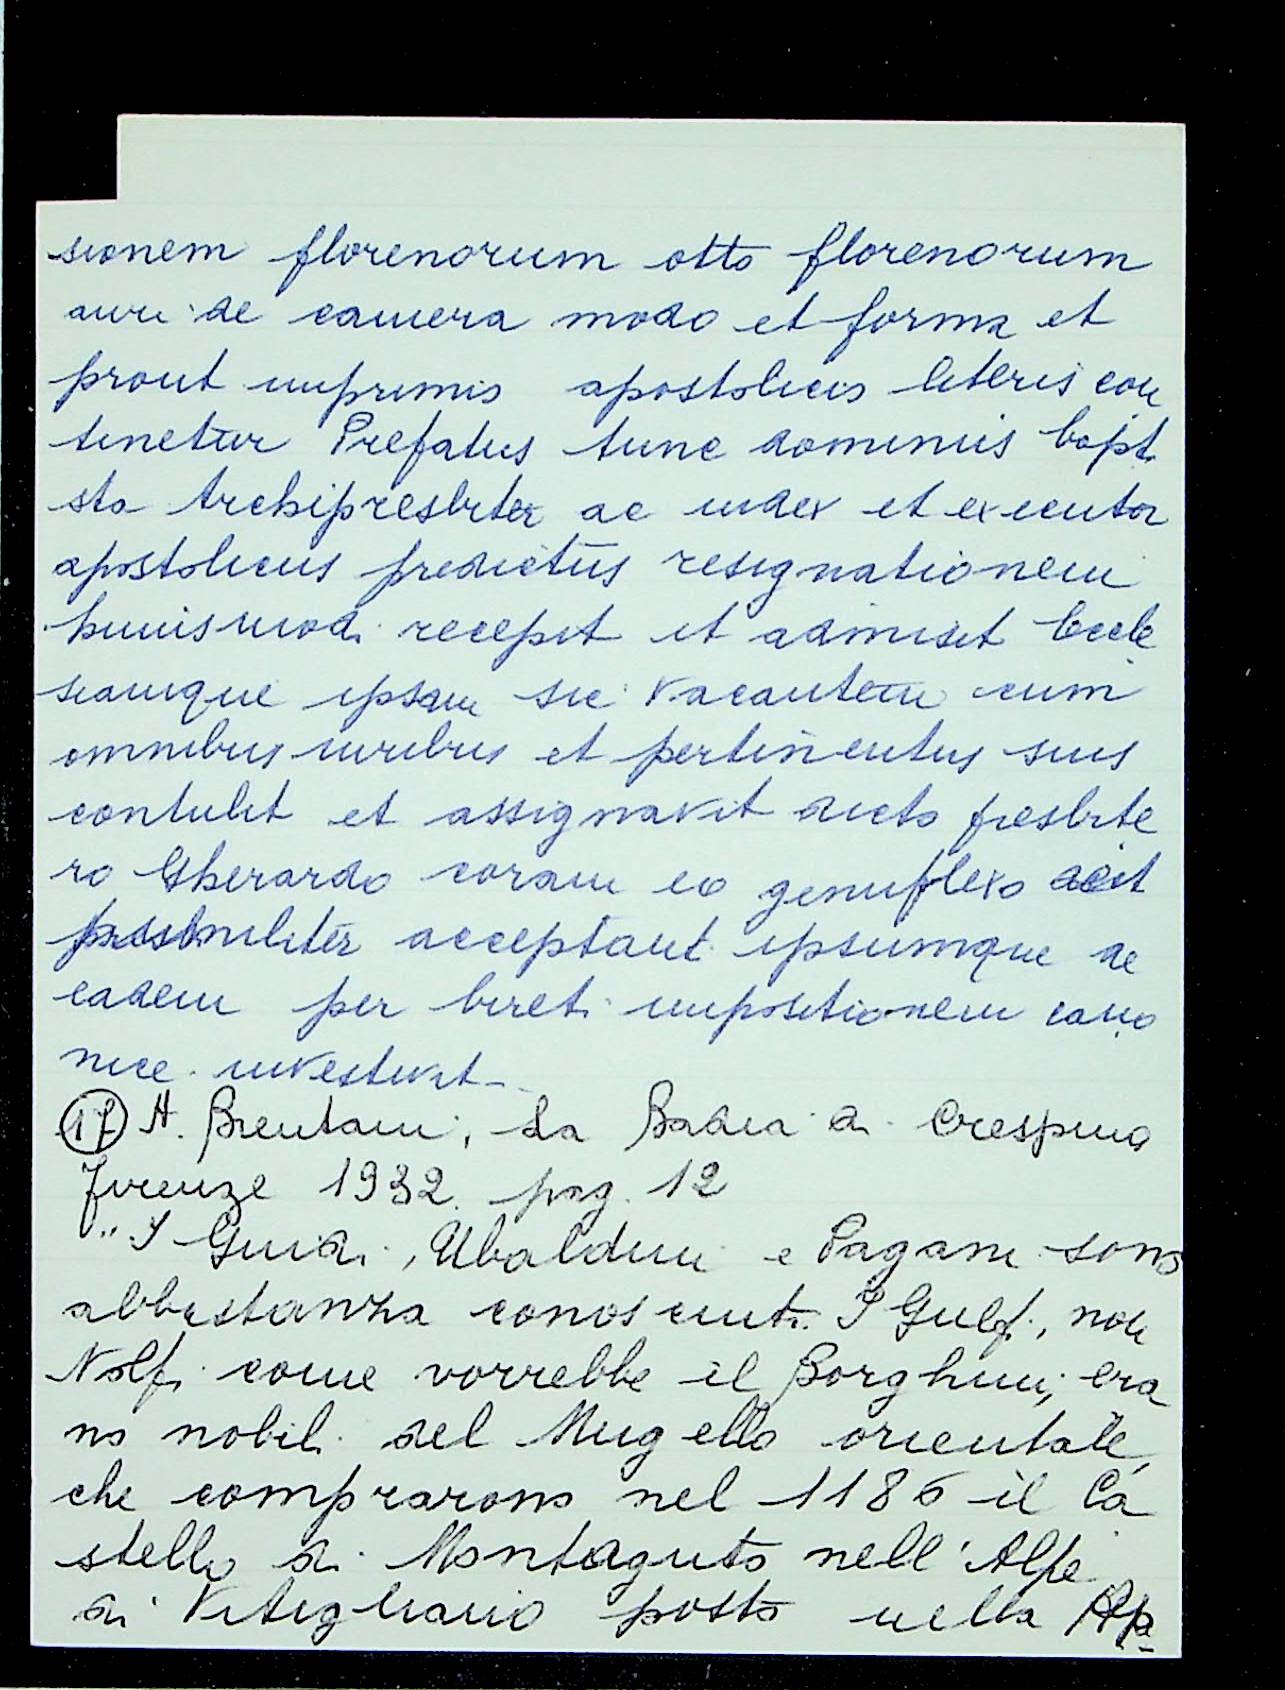 sionem florenorum otto florenorum
auri de camera modo et forma et
prout imprimis apostolicis literis con
tinetur Prefatus tunc dominus bapt
sta Archipresbiter ac iudex et executor
apostolicus predictus resignationem
huiusmodi recepit et admisit Eccle
siamque ipsam sic vacantem cum
omnibus iuribus et pertinentiis suis
contulit et assignavit dicto presbite
ro Gherardo coram eo genuflexo
acceptant ipsumque de
eadem per bireti impositionem cano
nice investivit
17 A. Brentani, La Badia di Crespino
Firenze 1932 pag. 12
"I Guidi, Ubaldini e Pagani sono
abbastanza conosciuti. I Gulfi, non
Nolfi come vorrebbe il Borghini, era
no nobili del Mugello orientale,
che comprarono nel 1186 il Ca
stello di Montaguto nell'Alpe
di Vitigliano posto nella Alpe